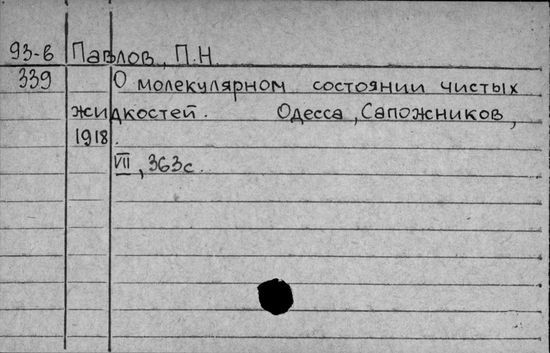 93-в Павлов, П.Н.
339 О молекулярном состоянии чистых
жидкостей. Одесса, Сапожников,
1918.
VII, 363с.